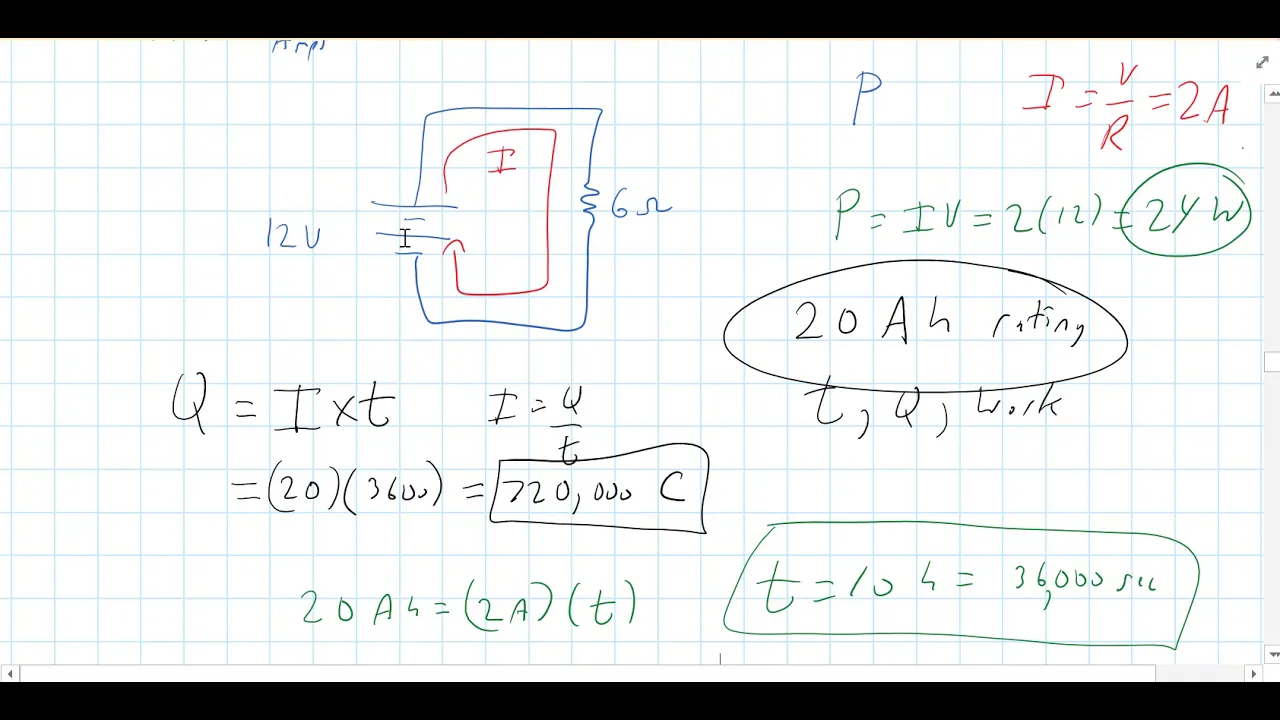 Amps
P
I = V/R = 2A
I
6Ω
12V
P = IV = 2(12) = 24W
20 Ah rating
t, Q, work
Q = I x t
I = Q/t
= (20)(3600) = 720,000 C
20 Ah = (2A)(t)
t = 10 h = 36,000 sec